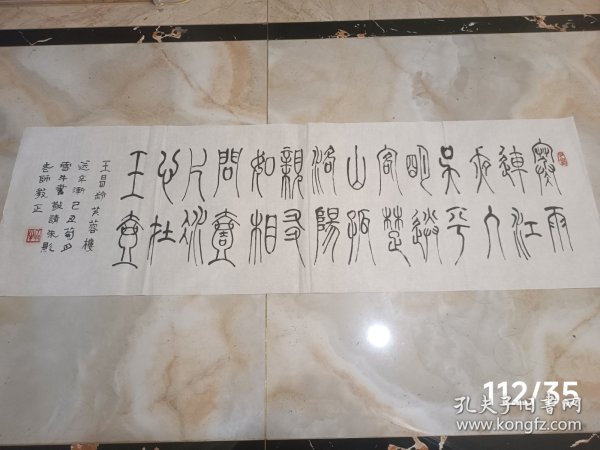 寒雨
連江
夜入
吳平
明送
客楚
山孤
洛陽
親友
如相
問壹
片冰
心在
玉壺
王昌齡芙蓉樓
送辛漸己丑菊月
雪牛書敬請朱
老師教正
112/35
孔夫子旧书网
www.kongfz.com